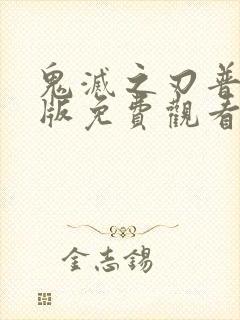 鬼滅之刃普
版免費觀看
金志錫